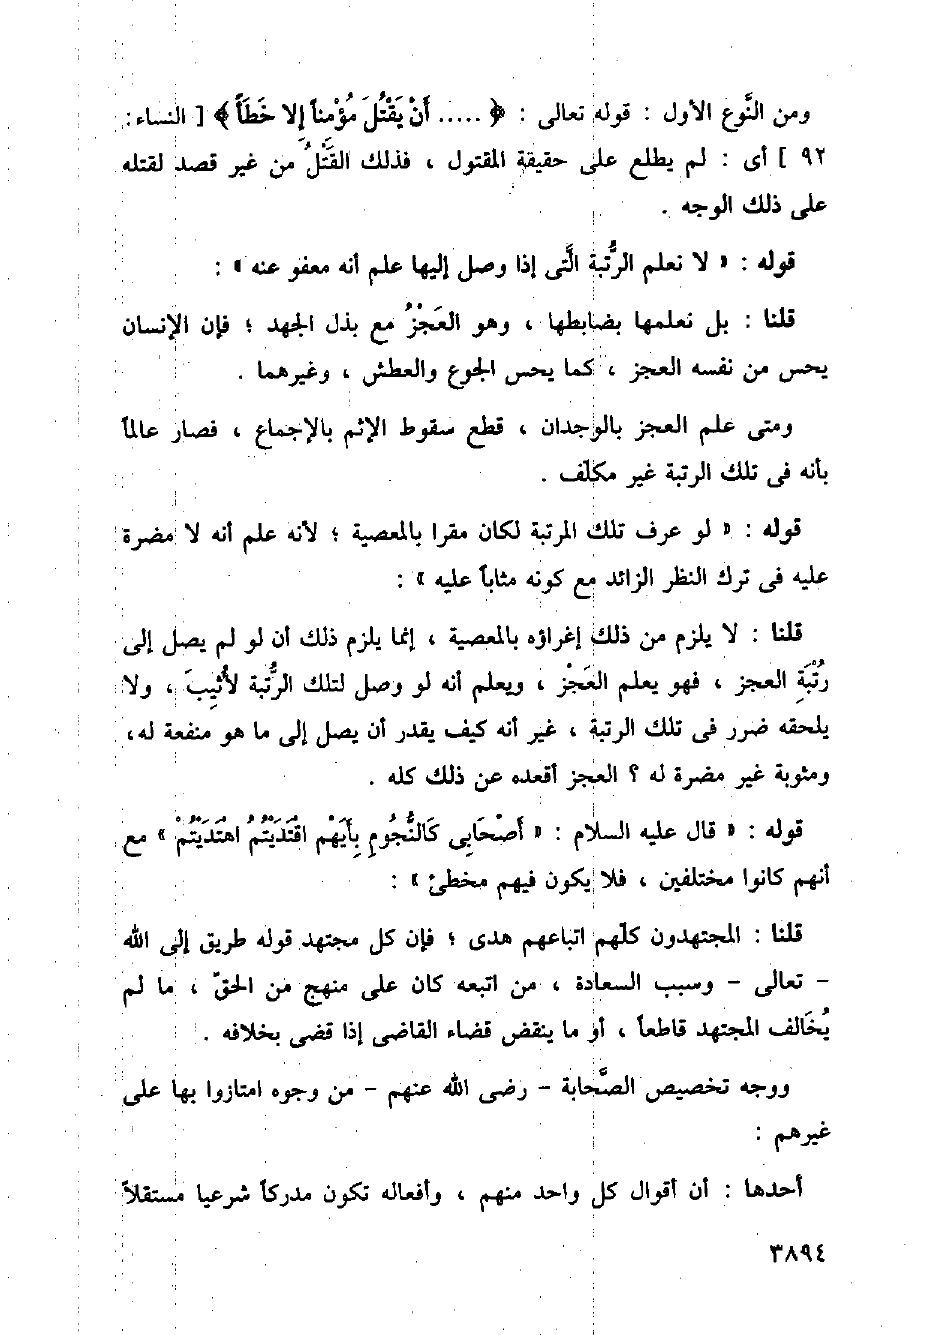 ومن النَّوع الأول : قوله تعالى : ﴿ ..... أَنْ يَقْتُلَ مُؤْمِناً إِلا خَطَأً ﴾ [ النساء :
٩٢ ] أى : لم يطلع على حقيقة المقتول ، فذلك القَتْلُ من غير قصد لقتله
على ذلك الوجه .
قوله : « لا نعلم الرُّتبة الَّتى إذا وصل إليها علم أنه معفو عنه » :
قلنا : بل نعلمها بضابطها ، وهو العَجْزُ مع بذل الجهد ؛ فإن الإنسان
يحس من نفسه العجز ، كما يحس الجوع والعطش ، وغيرهما .
ومتى علم العجز بالوجدان ، قطع سقوط الإثم بالإجماع ، فصار عالماً
بأنه فى تلك الرتبة غير مكلّف .
قوله : « لو عرف تلك المرتبة لكان مقرا بالمعصية ؛ لأنه علم أنه لا مضرة
عليه فى ترك النظر الزائد مع كونه مثاباً عليه » :
قلنا : لا يلزم من ذلك إغراؤه بالمعصية ، إنما يلزم ذلك أن لو لم يصل إلى
رُتْبَةِ العجز ، فهو يعلم العَجْز ، ويعلم أنه لو وصل لتلك الرُّتبة لأُثِيبَ ، ولا
يلحقه ضرر فى تلك الرتبة ، غير أنه كيف يقدر أن يصل إلى ما هو منفعة له،
ومثوبة غير مضرة له ؟ العجز أقعده عن ذلك كله .
قوله : « قال عليه السلام : « أَصْحَابِى كَالنُّجُومِ بِأَيِّهِمْ اقْتَدَيْتُمُ اهْتَدَيْتُمْ » مع
أنهم كانوا مختلفين ، فلا يكون فيهم مخطئ » :
قلنا : المجتهدون كلّهم اتباعهم هدى ؛ فإن كل مجتهد قوله طريق إلى الله
- تعالى - وسبب السعادة ، من اتبعه كان على منهج من الحقّ ، ما لم
يُخَالف المجتهد قاطعاً ، أو ما ينقض قضاء القاضى إذا قضى بخلافه .
ووجه تخصيص الصَّحابة - رضى الله عنهم - من وجوه امتازوا بها على
غيرهم :
أحدها : أن أقوال كل واحد منهم ، وأفعاله تكون مدركاً شرعيا مستقلاً
٣٨٩٤